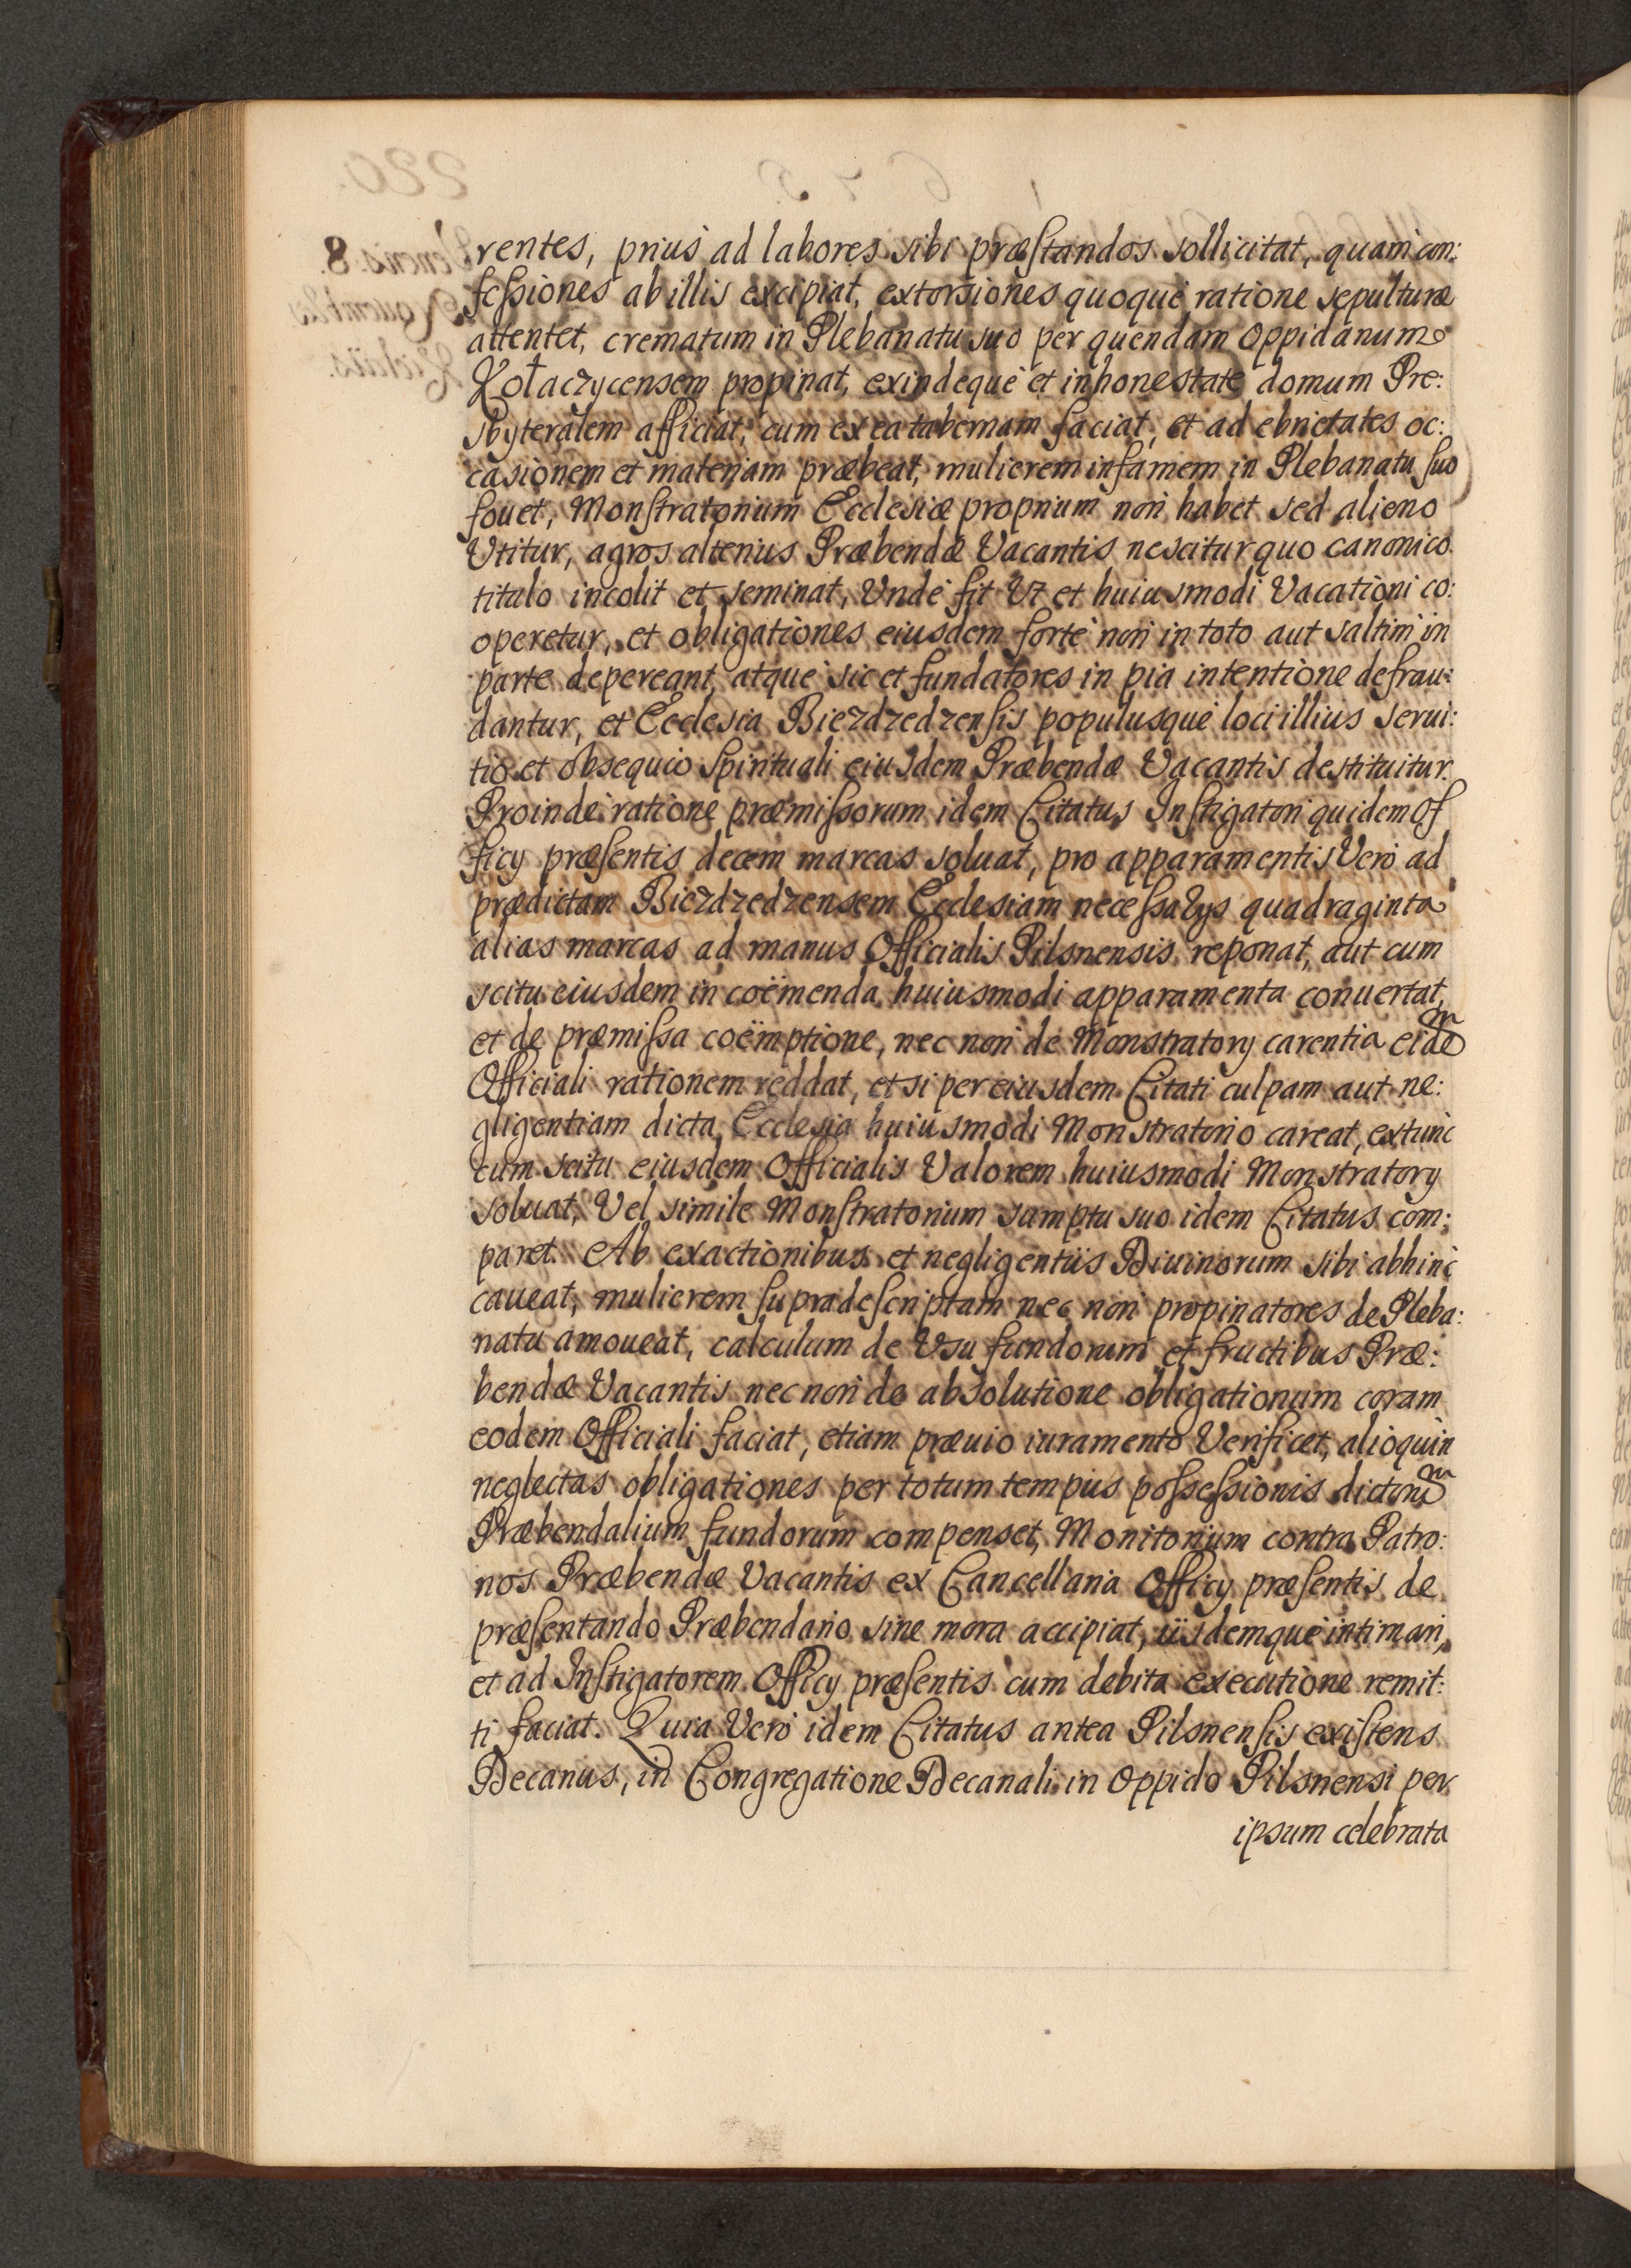 rentes, prius ad labores sibi præstandos sollicitat, quam con:
fessiones ab illis excipiat, extorsiones quoque ratione sepulturæ
attentet, crematum in Plebanatu suo per quendam Oppidanum
Kołaczycensem propinat, exindeque et inhonestate domum Pre:
sbyteralem afficiat, cum ex ea tabernam faciat, et ad ebrietates oc:
casionem et materiam præbeat, mulierem infamem in Plebanatu suo
fouet, Monstratorium Ecclesiæ proprium non habet sed alieno
Vtitur, agros alterius Præbendæ Vacantis nescitur quo canonico
titulo incolit et seminat, Vnde fit Vt et huiusmodi Vacationi co:
operetur, et obligationes eiusdem forte non in toto aut saltim in
parte depereant, atque sic et fundatores in pia intentione defrau:
dantur, et Ecclesia Bierzdzedzensis populusque loci illius serui:
tio et obsequio Spirituali eiusdem Præbendæ Vacantis destituitur.
Proinde ratione præmissorum idem Citatus Instigatori quidem Of
ficy præsentis decem marcas soluat, pro apparamentis Vero ad
prædictam Bierzdzedzensem Ecclesiam necessarys quadraginta
alias marcas ad manus Officialis Pilsnensis reponat, aut cum
scitu eiusdem in coëmenda huiusmodi apparamenta conuertat,
et de præmissa coëmptione, nec non de Monstratory carentia eidem
Officiali rationem reddat, et si per eiusdem Citati culpam aut ne:
gligentiam dicta Ecclesia huiusmodi Monstratorio careat, extunc
cum scitu eiusdem Officialis Valorem huiusmodi Monstratory
soluat, Vel simile Monstratorium sumptu suo idem Citatus com:
paret. Ab exactionibus et negligentiis Diuinorum sibi abhinc
caueat, mulierem supradescriptam nec non propinatores de Pleba:
natu amoueat, calculum de Vsu fundorum et fructibus Præ:
bendæ Vacantis nec non de absolutione obligationum coram
eodem Officiali faciat, etiam præuio iuramento Verificet, alioquin
neglectas obligationes per totum tempus possessionis dictorum
Præbendalium fundorum compenset, Monitorium contra Patro:
nos Præbendæ Vacantis ex Cancellaria Officy præsentis de
præsentando Præbendario sine mora accipiat, iisdemque intimari,
et ad Instigatorem Officy præsentis cum debita executione remit:
ti faciat. Quia Vero idem Citatus antea Pilsnensis existens
Decanus, in Congregatione Decanali in Oppido Pilsnensi per
ipsum celebrata